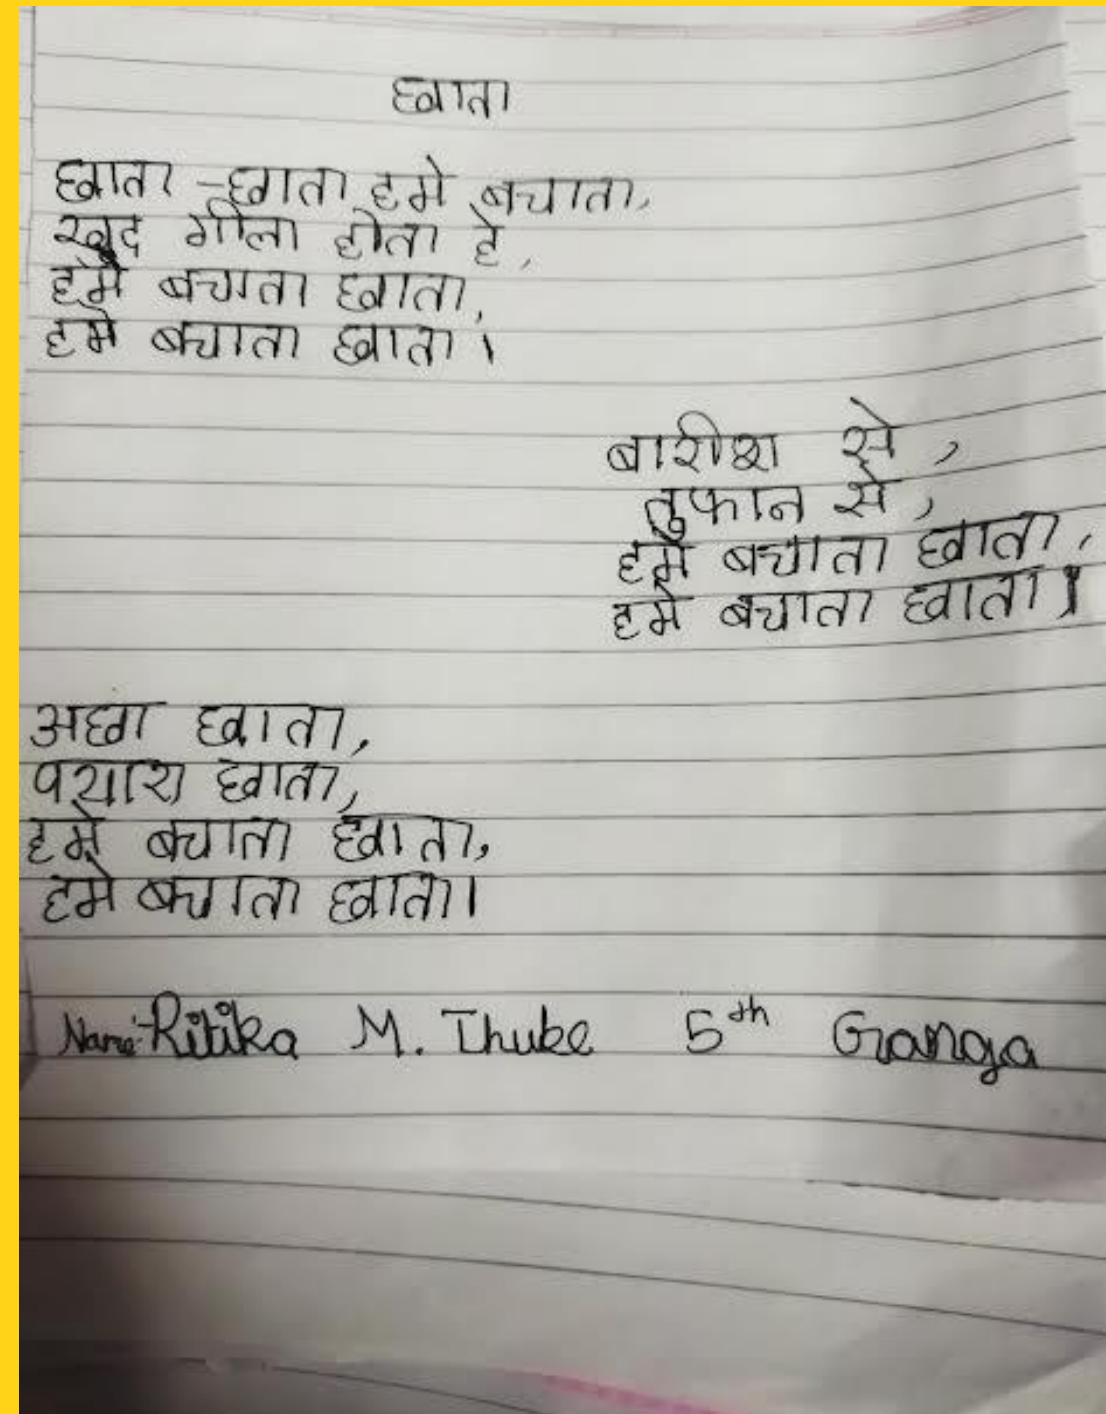 छाता
छाता - छाता हमे बचाता,
खुद गीला होता हे,
हमे बचाता छाता,
हमे बचाता छाता।
बारीश से,
तुफान से,
हमे बचाता छाता,
हमे बचाता छाता।
अछा छाता,
प्यारा छाता,
हमे बचाता छाता,
हमे बचाता छाता।
Name:- Ritika M. Thube 5th Ganga